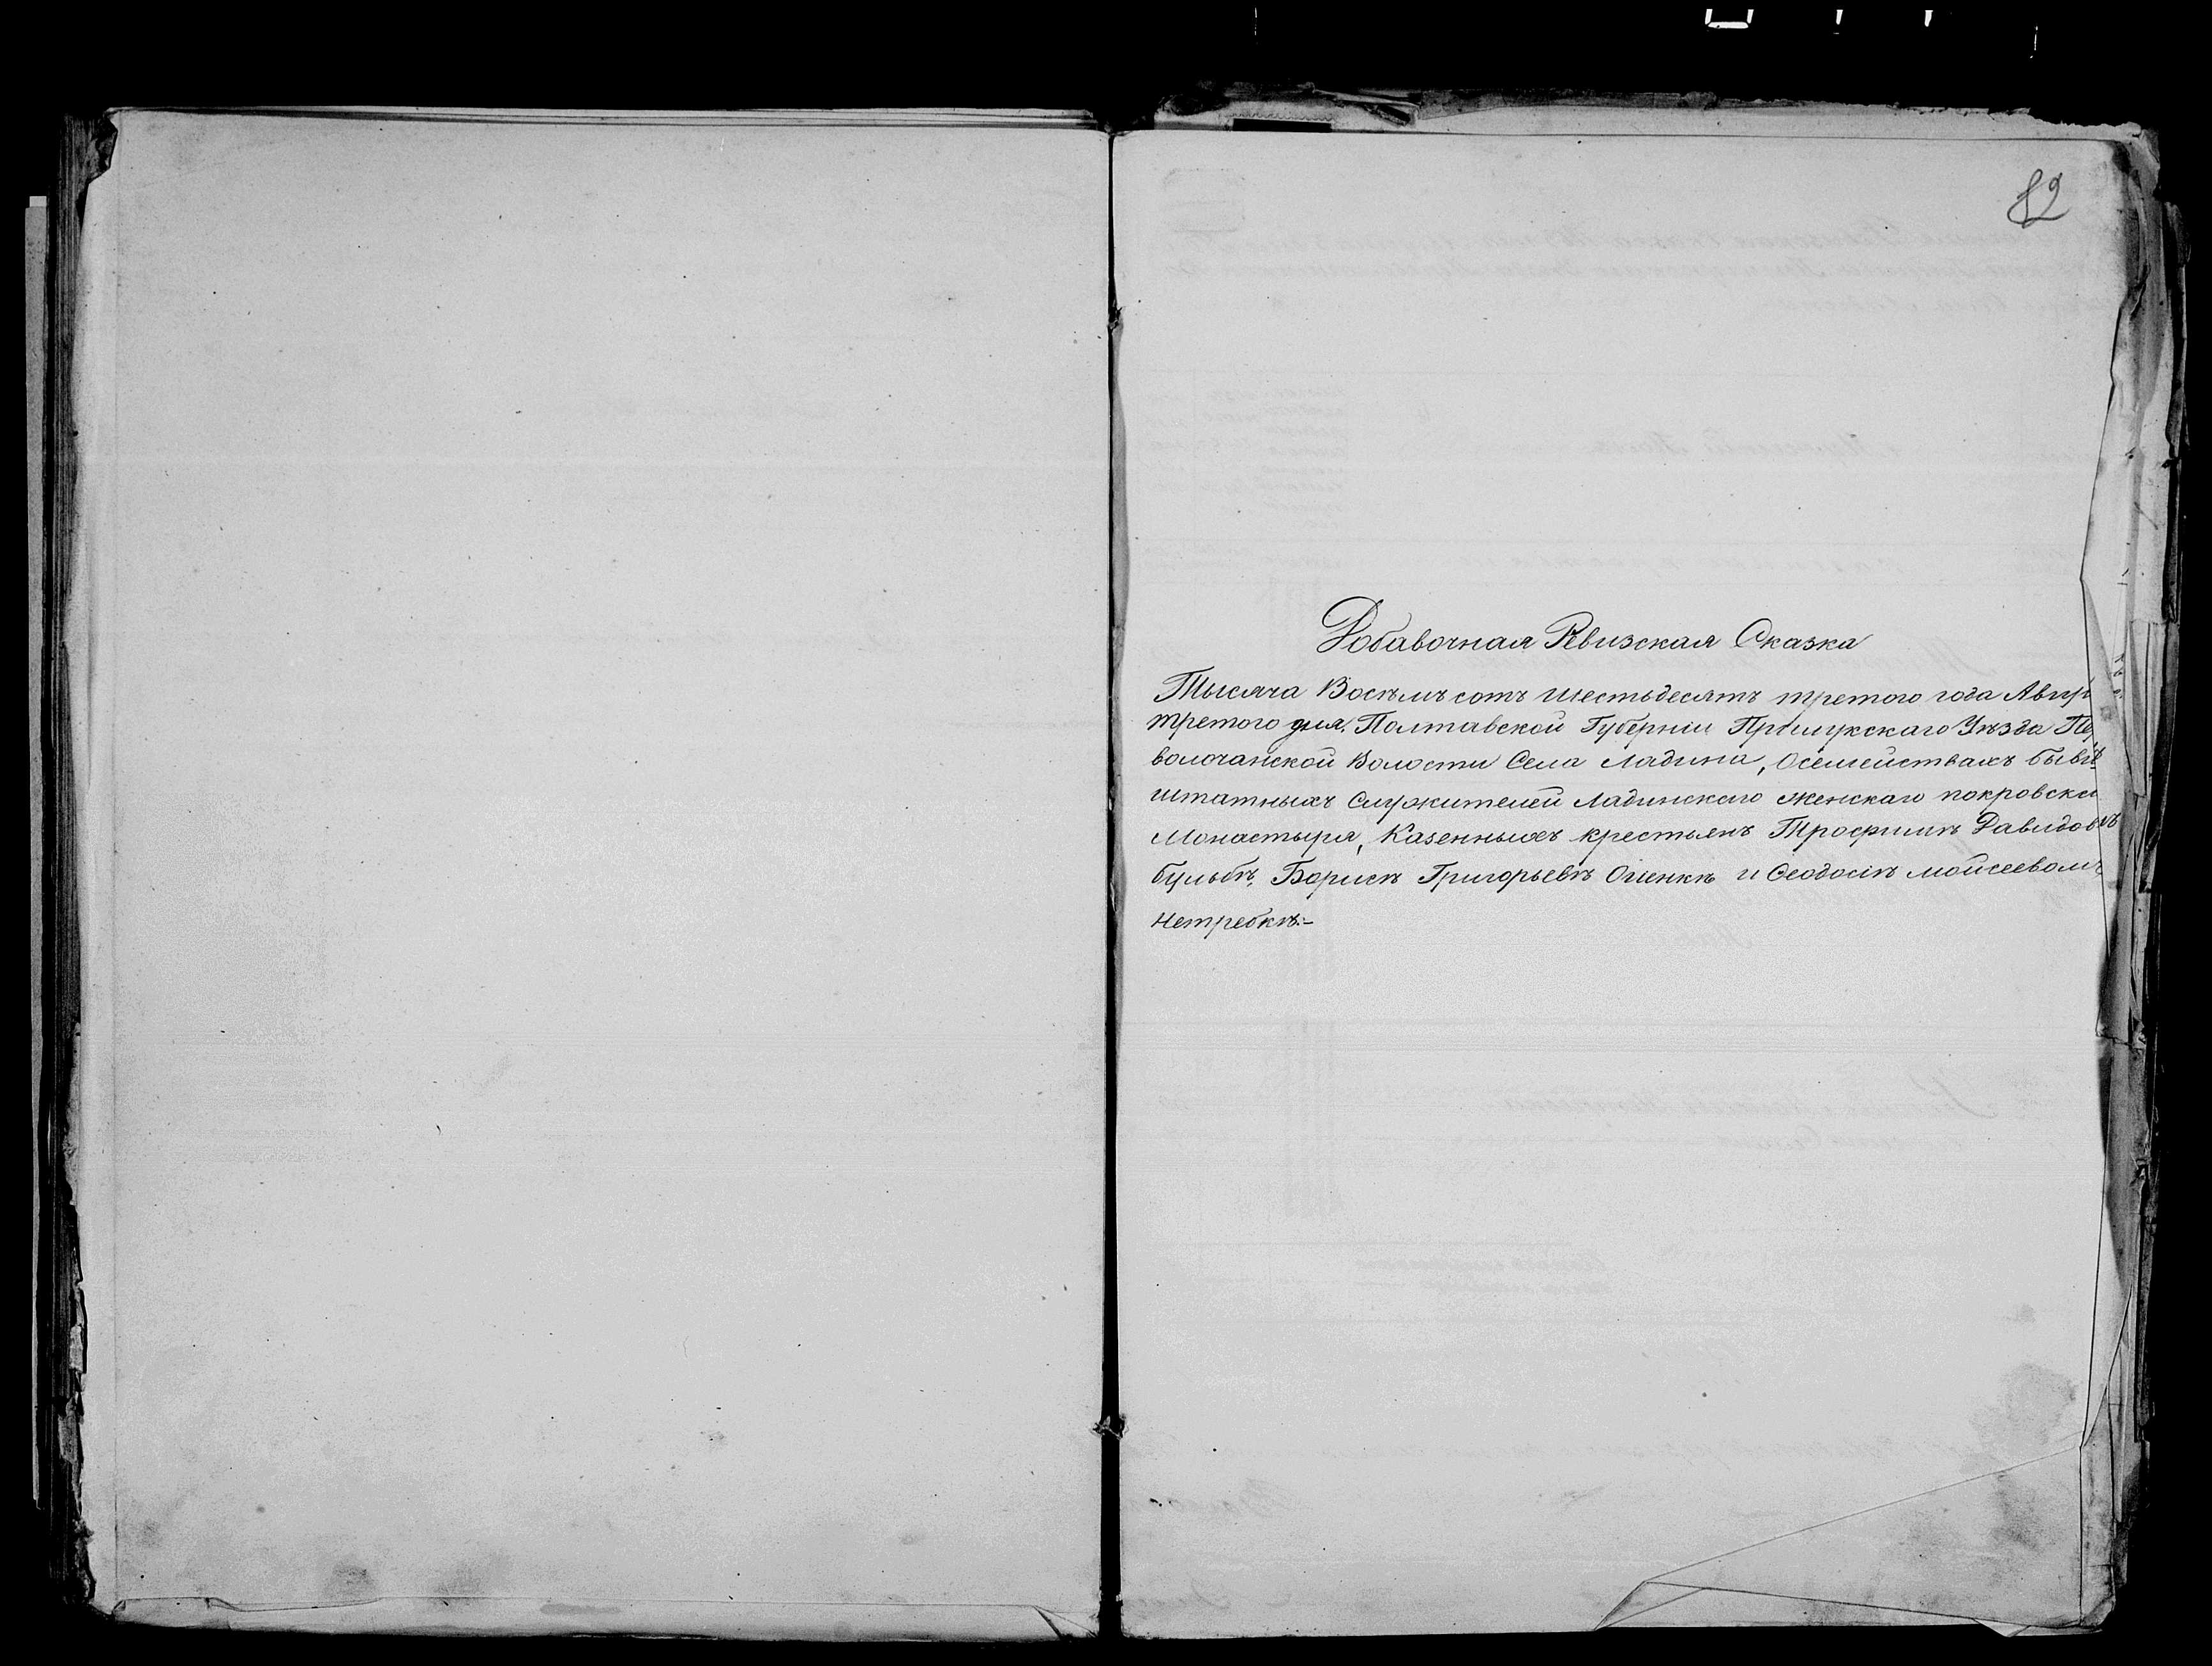 82
Добавочная Ревизская Сказка
Тысяча Восѣмъ сотъ шестьдесятъ третого года Авгус
третого дня, Полтавской Губерніи Прилукскаго Уѣзда Пе
волочанской Волости Села Ладина, Осемействахъ бывш
штатныхъ служителей Ладинскаго женскаго покровска
Монастыря, Казенныхъ крестьянъ Трофимѣ Давидовѣ
бульбѣ, Борисѣ Григорьевѣ Огіенкѣ и Ѳеодосіѣ мойсеевомъ
Нетребкѣ.–